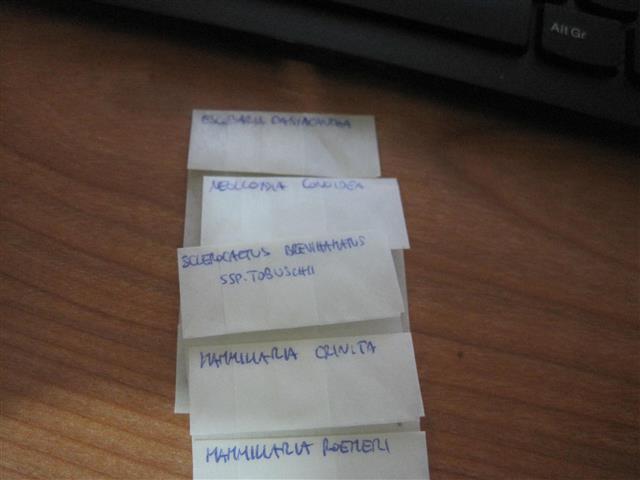 Alt Gr
ESCOBARIA DASYACANTHA
NEOLLOYDIA CONOIDEA
SCLEROCACTUS BREVIHAMATUS
SSP. TOBUSCHII
MAMMILLARIA CRINITA
MAMMILLARIA ROEMERI